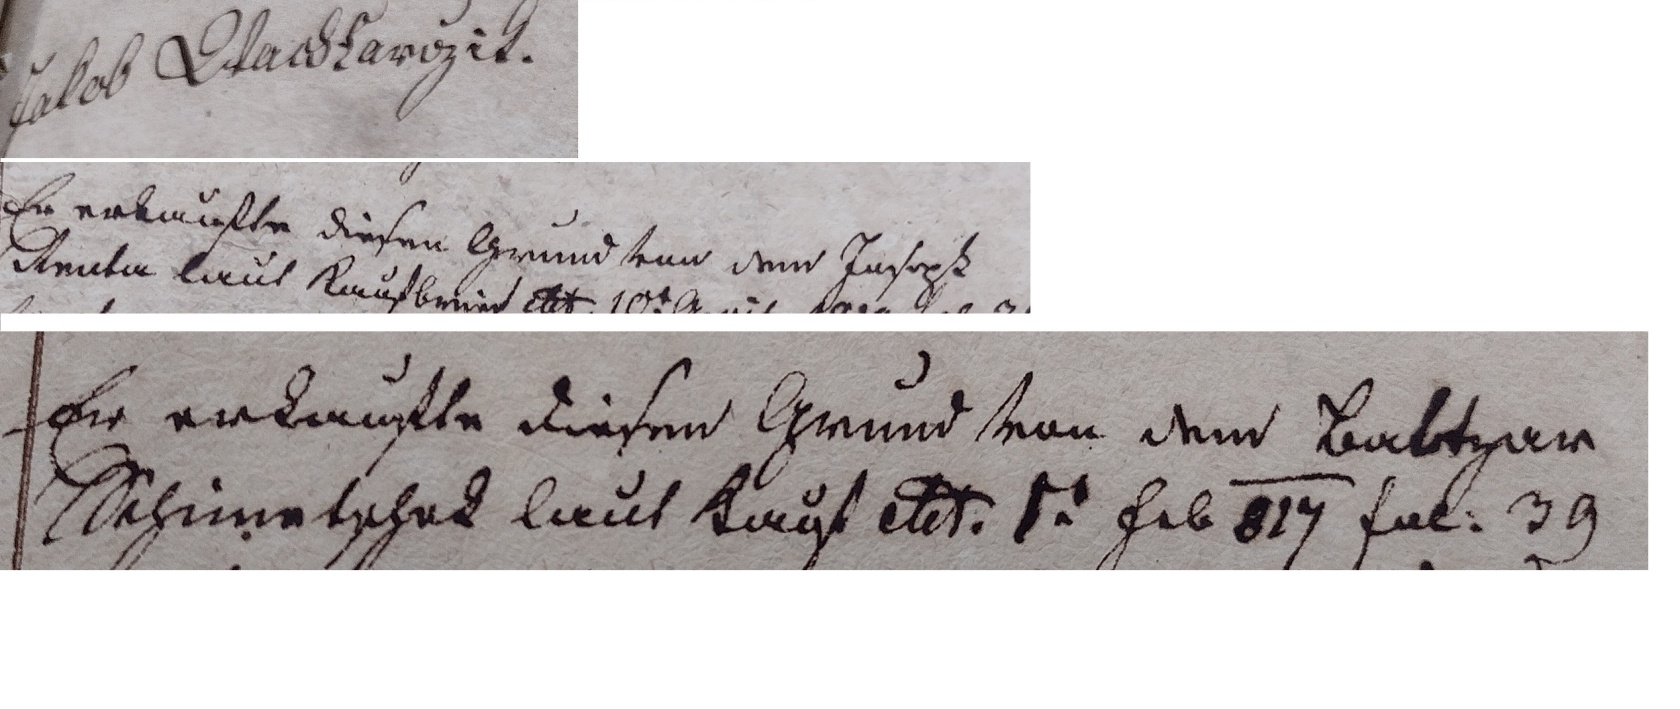 Jakob
Er erkaufte diesen Grund von dem Joseph
Renta laut Kaufbrief ddt. 10t April
Er erkaufte diesen Grund von dem Baltzar
Schimetschek laut Kauf ddt. 1t Feb 817 fol: 39